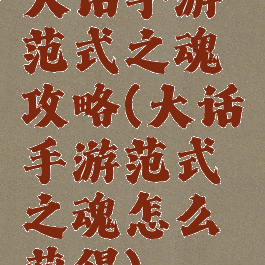 大话手游
范式之魂
攻略(大话
手游范式
之魂怎么
获得)